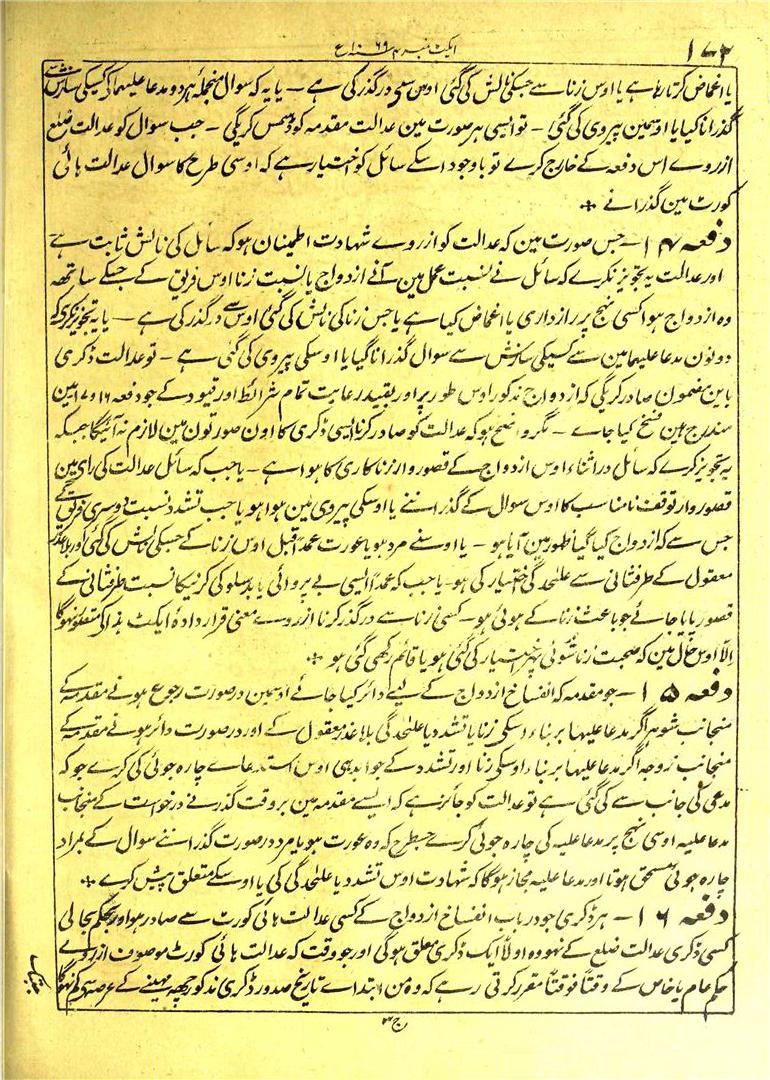 ۱۷۲
ایکٹ نمبر ۴ سنہ ۱۸۶۹ع
یا اغماض کرتا رہا ہے یا اوس زنا سے جسکی نالش کی گئی اوسنے درگذر کی ہے – یا یہ کہ سوال منجملہ ہر دو مدعاعلیہما کے کسیکی سازش سے
گذرانا گیا یا اوسمین پیروی کی گئی – تو ایسی ہر صورت مین عدالت مقدمہ کو ڈسمس کریگی – جب سوال کو عدالت ضلع
ازروے اس دفعہ کے خارج کرے تو باوجود اسکے سائل کو اختیار ہے کہ اوسی طرح کا سوال عدالت ہائی
کورٹ مین گذرانے ٭
دفعہ ۱۴ – جس صورت مین کہ عدالت کو ازروے شہادت اطمینان ہو کہ سائل کی نالش ثابت ہے
اور عدالت یہ تجویز نکرے کہ سائل نے بہ نسبت عمل مین آنے ازدواج یا نسبت زنا اوس فریق کے جسکے ساتھہ
وہ ازدواج ہوا کسی نہج پر رازداری یا اغماض کیا ہے یا جس زنا کی نالش کی گئی اوس سے درگذر کی ہے – یا یہ تجویز نکرے کہ
دونون مدعاعلیہما مین سے کسیکی سازش سے سوال گذرانا گیا یا اوسکی پیروی کی گئی ہے – تو عدالت ڈکری
باین مضمون صادر کریگی کہ ازدواج مذکور اوس طور پر اور بقید رعایت تمام شرائط اور قیود کے جو دفعہ ۱۶ و ۱۷ مین
مندرج ہین فسخ کیا جاے – مگر واضح ہو کہ عدالت کو صادر کرنا ایسی ڈکری کا اون صورتون مین لازم نہ آئیگا جبکہ
یہ تجویز کرے کہ سائل در اثناء اوس ازدواج کے قصور وار زناکاری کا ہوا ہے – یا جب کہ سائل عدالت کی راے مین
قصوروار توقف نامناسب کا اوس سوال کے گذراننے یا اوسکی پیروی مین ہوا ہو یا جب تشدد نسبت دوسری فریق کے
جس سے کہ ازدواج کیا گیا ظہور مین آیا ہو – یا اوسنے مرد ہو یا عورت عمداً قبل اوس زنا کے جسکی نالش کی گئی اور بلا عذر
معقول کے طرفثانی سے علیحدگی اختیار کی ہو – یا جب کہ عمداً ایسی بے پروائی یا بدسلوکی کرنیکا نسبت طرفثانی کے
قصور پایا جائے جو باعث زنا کے ہوئی ہو – کسی زنا سے درگذر کرنا ازروے معنی قرار دادۂ ایکٹ ہذا کے متصور نہوگا
الّا اوس حال مین کہ صحبت زناشوئی پھر اختیار کی گئی ہو یا قائم رکھی گئی ہو ٭
دفعہ ۱۵ – جو مقدمہ کہ انفساخ ازدواج کے لیے دائر کیا جائے اوسمین درصورت رجوع ہونے مقدمہ کے
منجانب شوہر اگر مدعاعلیہا بر بناء اوسکی زنا یا تشدد یا علیحدگی بلا عذر معقول کے اور درصورت دائر ہونے مقدمہ کے
منجانب زوجہ اگر مدعاعلیہ بر بناء اوسکی زنا اور تشدد کے جوابدہی اوس استدعاے چارہ جوئی کی کرے جو کہ
مدعی کی جانب سے کی گئی ہے تو عدالت کو جائز ہے کہ ایسے مقدمہ مین بروقت گذرنے درخواست کے منجانب
مدعاعلیہ اوسی نہج پر مدعاعلیہ کی چارہ جوئی کرے جسطرح کہ وہ عورت ہو یا مرد درصورت گذراننے سوال کے بمراد
چارہ جوئی مستحق ہوتا اور مدعاعلیہ مجاز ہوگا کہ شہادت اوس تشدد یا علیحدگی کی یا اوسکے متعلق پیش کرے ٭
دفعہ ۱۶ – ہر ڈکری جو درباب انفساخ ازدواج کے کسی عدالت ہائی کورٹ سے صادر ہو اور بحکم بحالی
کسی ڈکری عدالت ضلع کے نہو وہ اولاً ایک ڈکری معلق ہوگی اور جو وقت کہ عدالت ہائی کورٹ موصوف ازروے
حکم عام یا خاص کے وقتاً فوقتاً مقرر کرتی رہے کہ وہ من ابتداے تاریخ صدور ڈکری مذکور چھہ مہینے کے عرصہ سے کم نہوگا
ج ۳